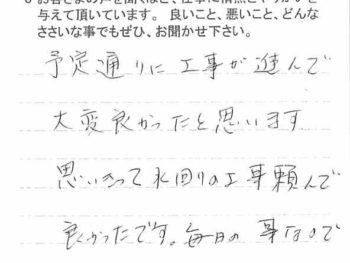 お客さまの声を聞くほど、仕事に情熱とやりがいを
与えて頂いています。 良いこと、悪いこと、どんな
ささいな事でもぜひ、お聞かせ下さい。
予定通りに工事が進んで
大変良かったと思います
思いきって水回りの工事頼んで
良かったです。毎日の事なので